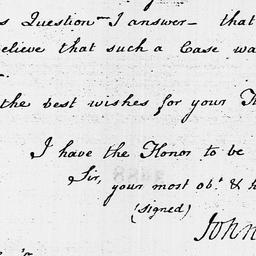 s Question I answer- that
elieve that such a Case wa
the best wishes for your H
I have the Honor to be
Sir,
your most obt. & h
(signed)
John